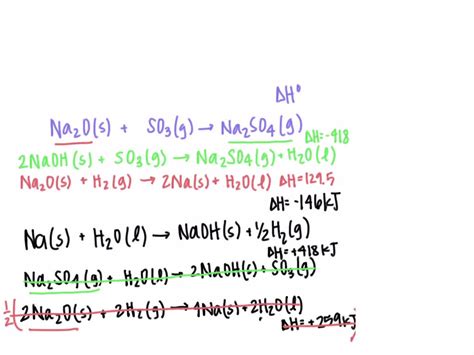 ΔH°
Na₂O(s) + SO₃(g) → Na₂SO₄(g)
ΔH=-418
2NaOH(s) + SO₃(g) → Na₂SO₄(g) + H₂O(l)
Na₂O(s) + H₂(g) → 2Na(s) + H₂O(l) ΔH=129.5
ΔH= -146kJ
Na(s) + H₂O(l) → NaOH(s) + ½H₂(g)
ΔH=+418kJ
Na₂SO₄(g) + H₂O(l) → 2NaOH(s) + SO₃(g)
½(2Na₂O(s) + 2H₂(g) → 4Na(s) + 2H₂O(l)
ΔH=+259kJ